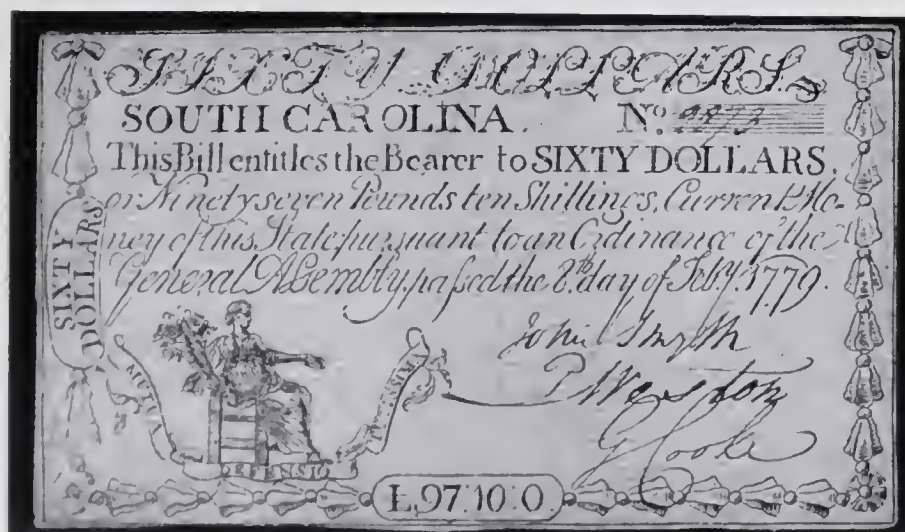 SIXTY DOLLARS.
SOUTH CAROLINA. No. 2873
This Bill entitles the Bearer to SIXTY DOLLARS,
or Ninety seven Pounds ten Shillings, Current Mo-
ney of this State pursuant to an Ordinance of the
General Assembly, passed the 8th. day of Feby. 1779.
SIXTY
DOLLARS
John Smyth
P Weston
G Cooke
DEFENSIO
L,97:10:0